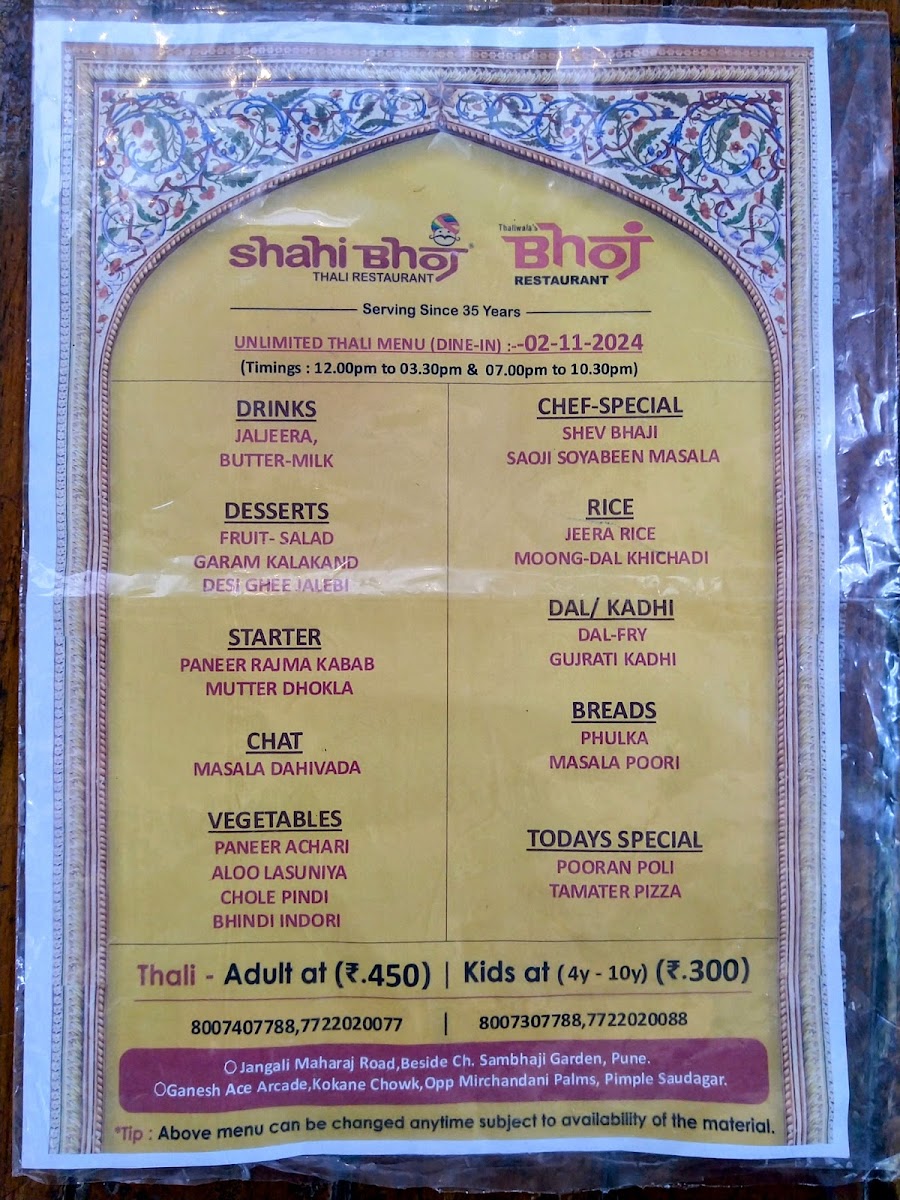 Shahi Bhoj®
THALI RESTAURANT
Thaliwala's
Bhoj
RESTAURANT
Serving Since 35 Years
UNLIMITED THALI MENU (DINE-IN) :--02-11-2024
(Timings : 12.00pm to 03.30pm & 07.00pm to 10.30pm)
DRINKS
JALJEERA,
BUTTER-MILK
DESSERTS
FRUIT- SALAD
GARAM KALAKAND
DESI GHEE JALEBI
STARTER
PANEER RAJMA KABAB
MUTTER DHOKLA
CHAT
MASALA DAHIVADA
VEGETABLES
PANEER ACHARI
ALOO LASUNIYA
CHOLE PINDI
BHINDI INDORI
CHEF-SPECIAL
SHEV BHAJI
SAOJI SOYABEEN MASALA
RICE
JEERA RICE
MOONG-DAL KHICHADI
DAL/ KADHI
DAL-FRY
GUJRATI KADHI
BREADS
PHULKA
MASALA POORI
TODAYS SPECIAL
POORAN POLI
TAMATER PIZZA
Thali - Adult at (₹.450) | Kids at (4y - 10y) (₹.300)
8007407788,7722020077 | 8007307788,7722020088
Jangali Maharaj Road,Beside Ch. Sambhaji Garden, Pune.
Ganesh Ace Arcade,Kokane Chowk,Opp Mirchandani Palms, Pimple Saudagar.
*Tip : Above menu can be changed anytime subject to availability of the material.